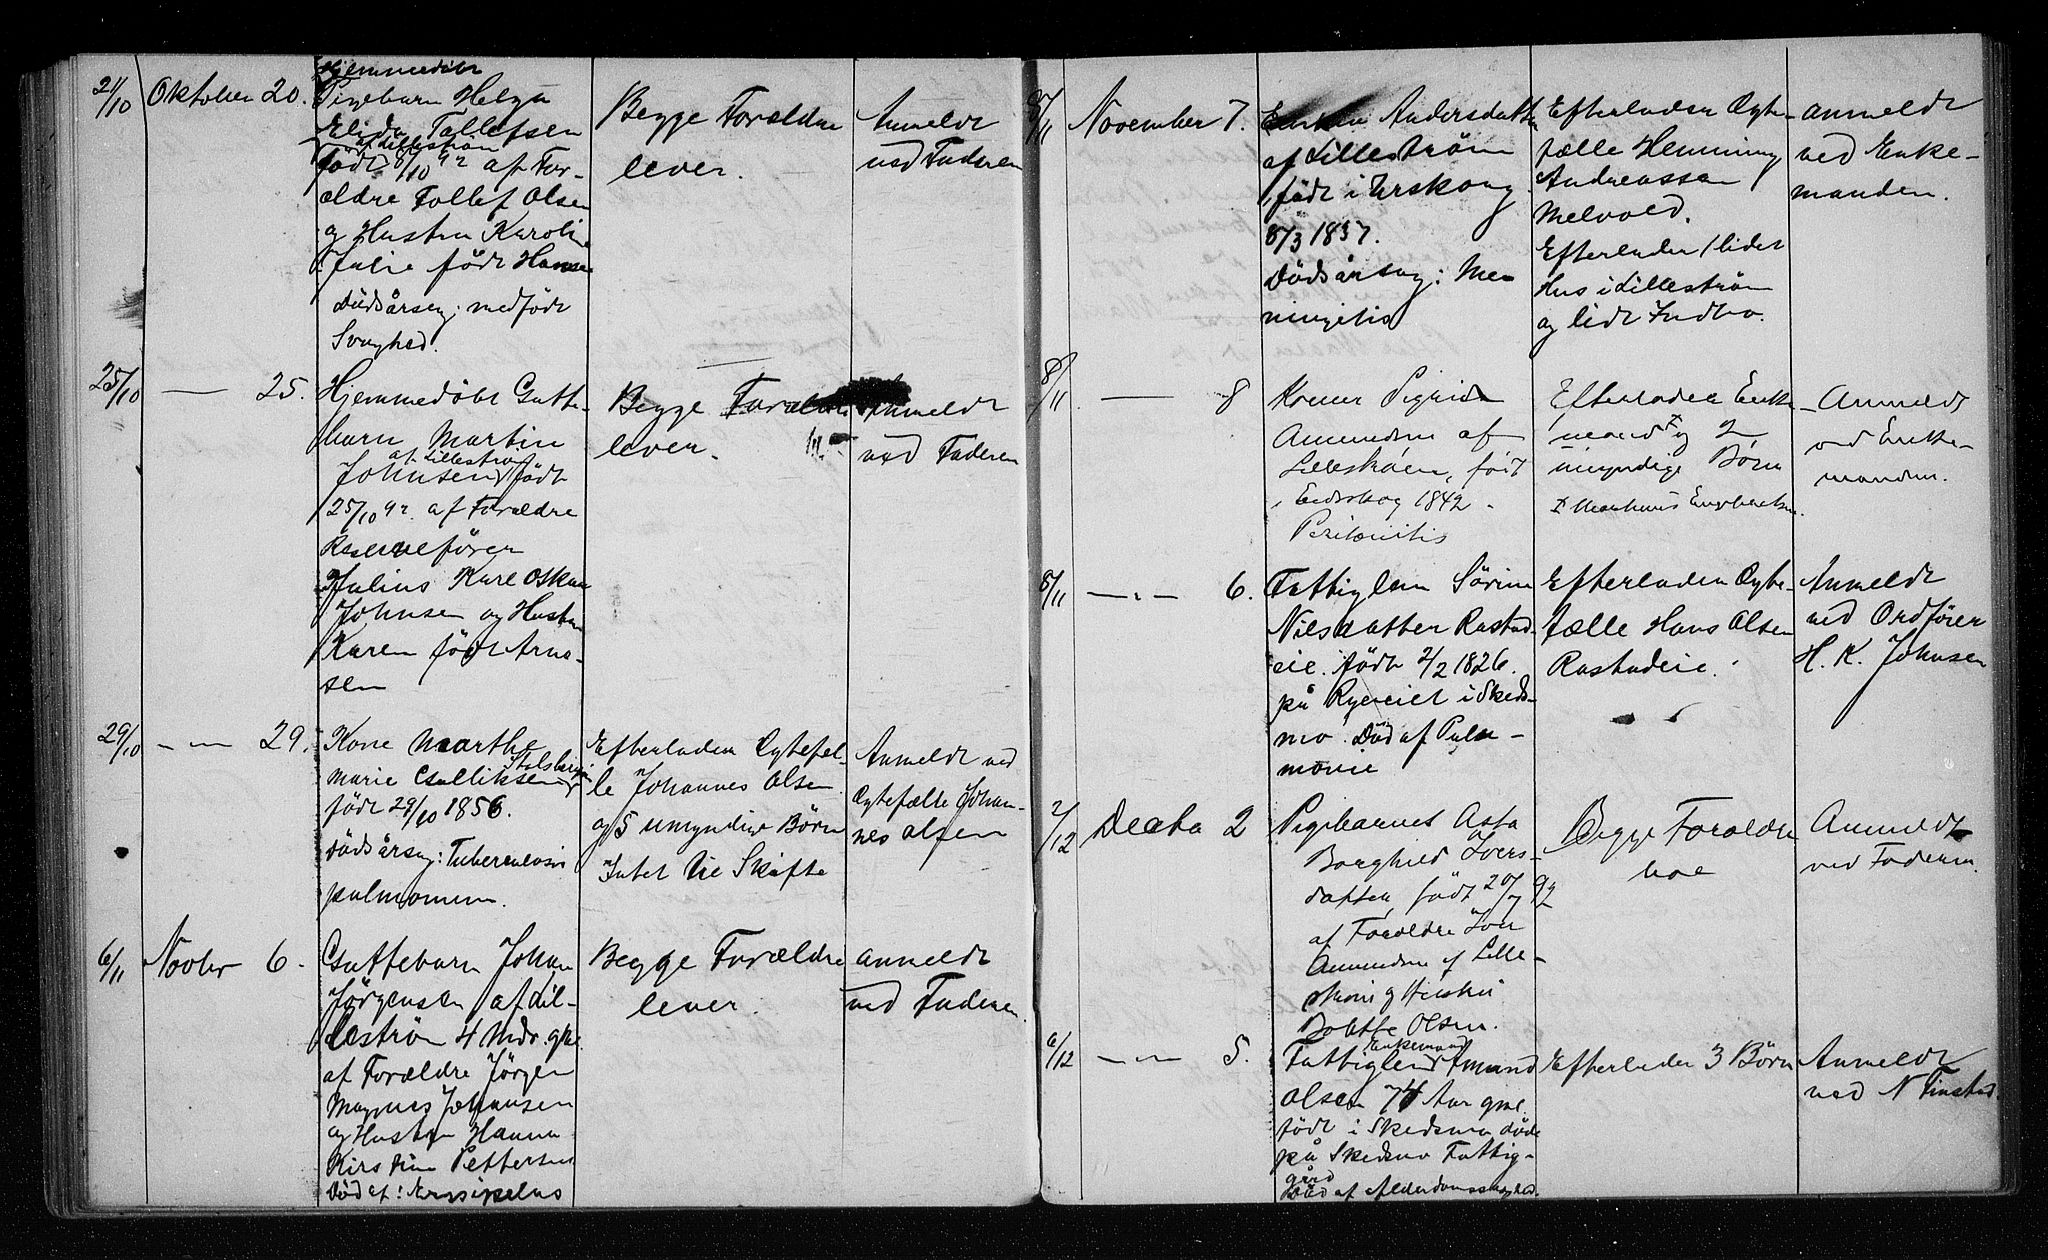 21/10 Oktober 20.
Hjemmedöbt
Pigebarn Helga
Elida Tollefsen
af Lillestrøm
født 8/10 92 af For-
ældre Tollef Olsen
og Hustru Karoline
Julie født Hansen
Dödsårsag: medfödt
Svaghed.
Begge Forældre
lever.
Anmeldt
ved Faderen
25/10 — 25.
Hjemmedöbt Gutte-
barn Martin
af Lillestrøm
Johnsen født
25/10 92. af Forældre
Julius Karl Oskar
Johnsen og Hustru
Karen født Arne-
sen
Begge Forældre
lever.
Anmeldt
ved Faderen
29/10 — 29.
Kone Marthe
Marie Gulliksen
født 29/10 1856.
Dödsårsag: Tuberculosis
pulmonum.
Efterlader Ægtefæl-
le Johannes Olsen
og 5 umyndige Börn
Intet til Skifte
Anmeldt ved
Ægtefælle Johan-
nes Olsen
6/11 Novbr 6.
Guttebarn Johan
Jörgensen af Lil-
lestrøm 4 Mdr. gml.
af Forældre Jörgen
Magnus Johansen
og Hustru Hanna
Kirstine Pettersen
Död af: Erysipelas
Begge Forældre
lever.
anmeldt
ved Faderen.
8/11 November 7.
Andersdatter
af Lillestrøm
født i Urskoug
8/3 1837.
Dödsårsag: Me-
ningitis
Efterlader Ægte-
fælle Henning
Andreassen
Melvold.
Efterlader 1 lidet
Hus i Lillestrøm
og lidt Indbo.
anmeldt
ved Enke-
manden.
8/11 — 8
Konen Sigrid
Amundsen af
Lillestrøm, født
i Eidskog 1842.
Peritonitis
Efterlader Enke-
mand x og 2
umyndige Börn
x
Anmeldt
ved Enke-
manden.
8/11 — 6.
Fattiglem Sörine
Nilsdatter Rastad-
eie. født 2/2 1826.
på Ryeeiet i Skeds-
mo. Död af Pneu-
monie
Efterlader Ægte-
fælle Hans Olsen
Rastadeie.
Anmeldt
ved Ordförer
H. K. Johnsen
2/12 Decbr 2
Pigebarnet Asta
Borghild Ivers-
datter, født 20/7 92
af Forældre Iver
Amundsen af Lille-
strøm og Hustru
Bolette Olsen.
Begge Forældre
Anmeldt
ved Faderen.
6/12 — 5.
Enkemand
Fattiglem Amund
Olsen 74 Aar gml.
født i Skedsmo döde
på Skedsmo Fattig-
gård
Död af Alderdomssvaghed.
Efterlader 3 Börn
Anmeldt
ved N Tinstad